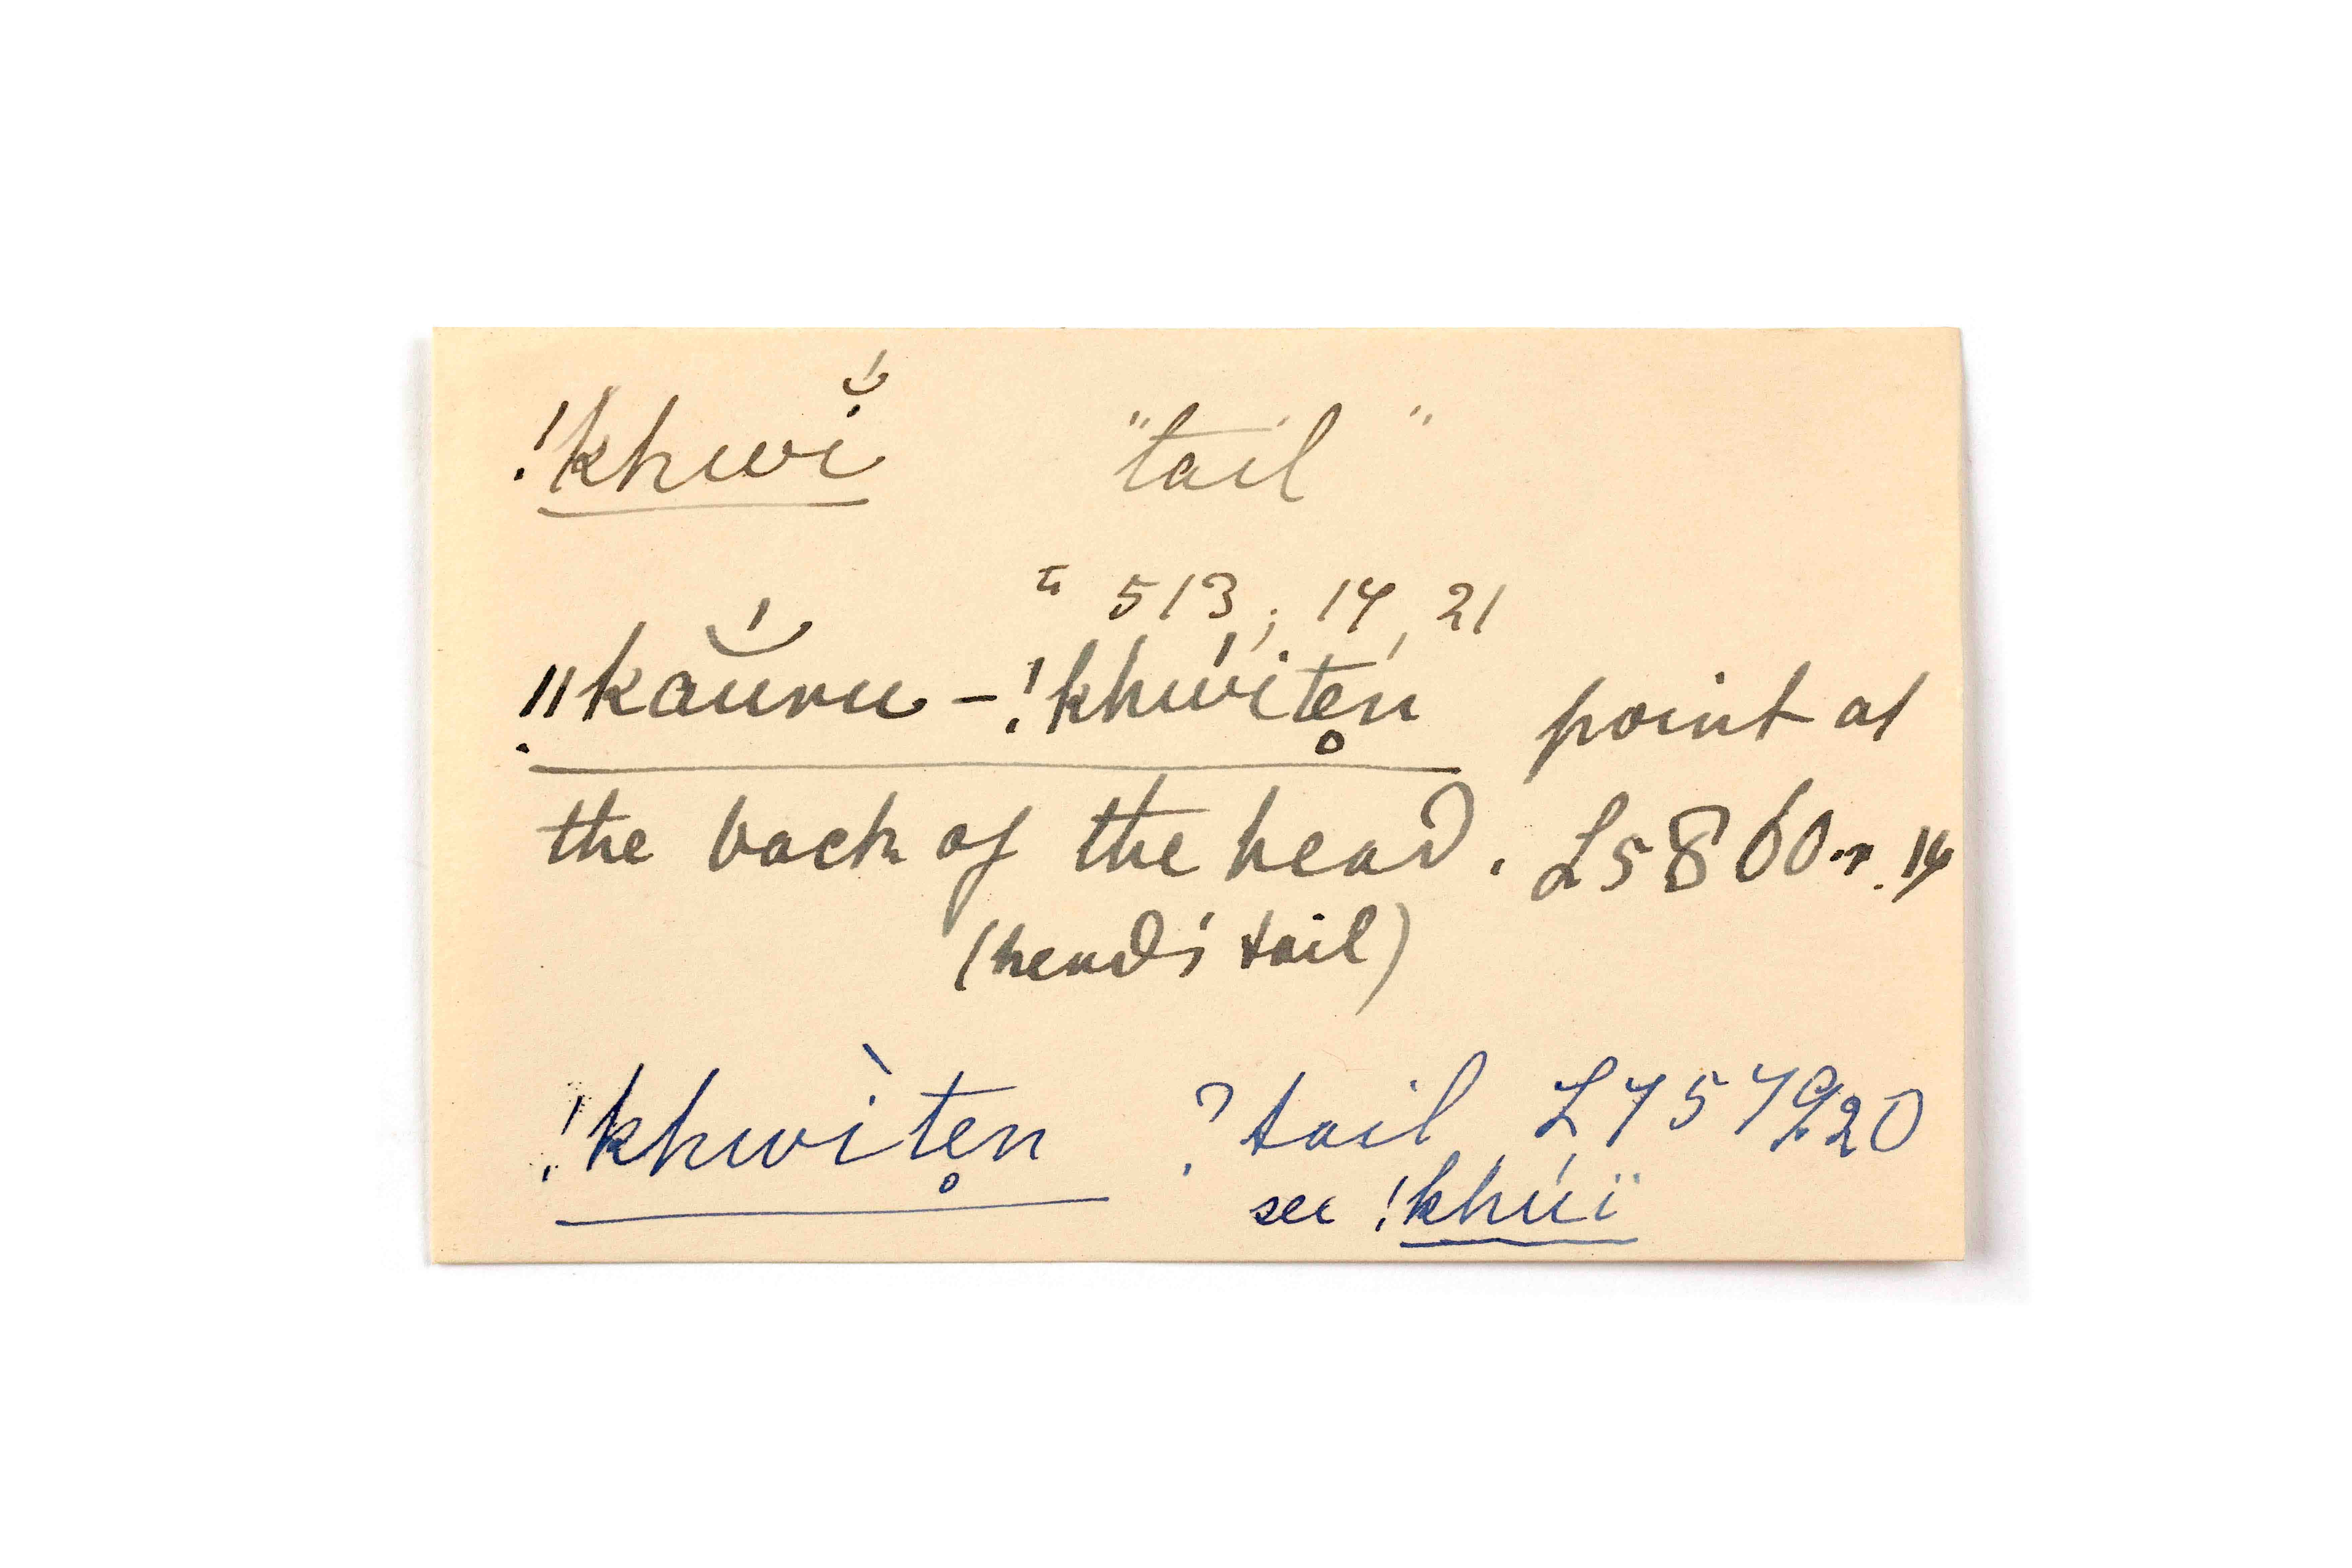 !khwĭ́ "tail"
5 513; 14, 21
ǁkaŭ́ru – !khwítẹn point at
the back of the head. L5860 r. 14
(head's tail)
!khwìte̥n ? tail L7579 20
see !khúï